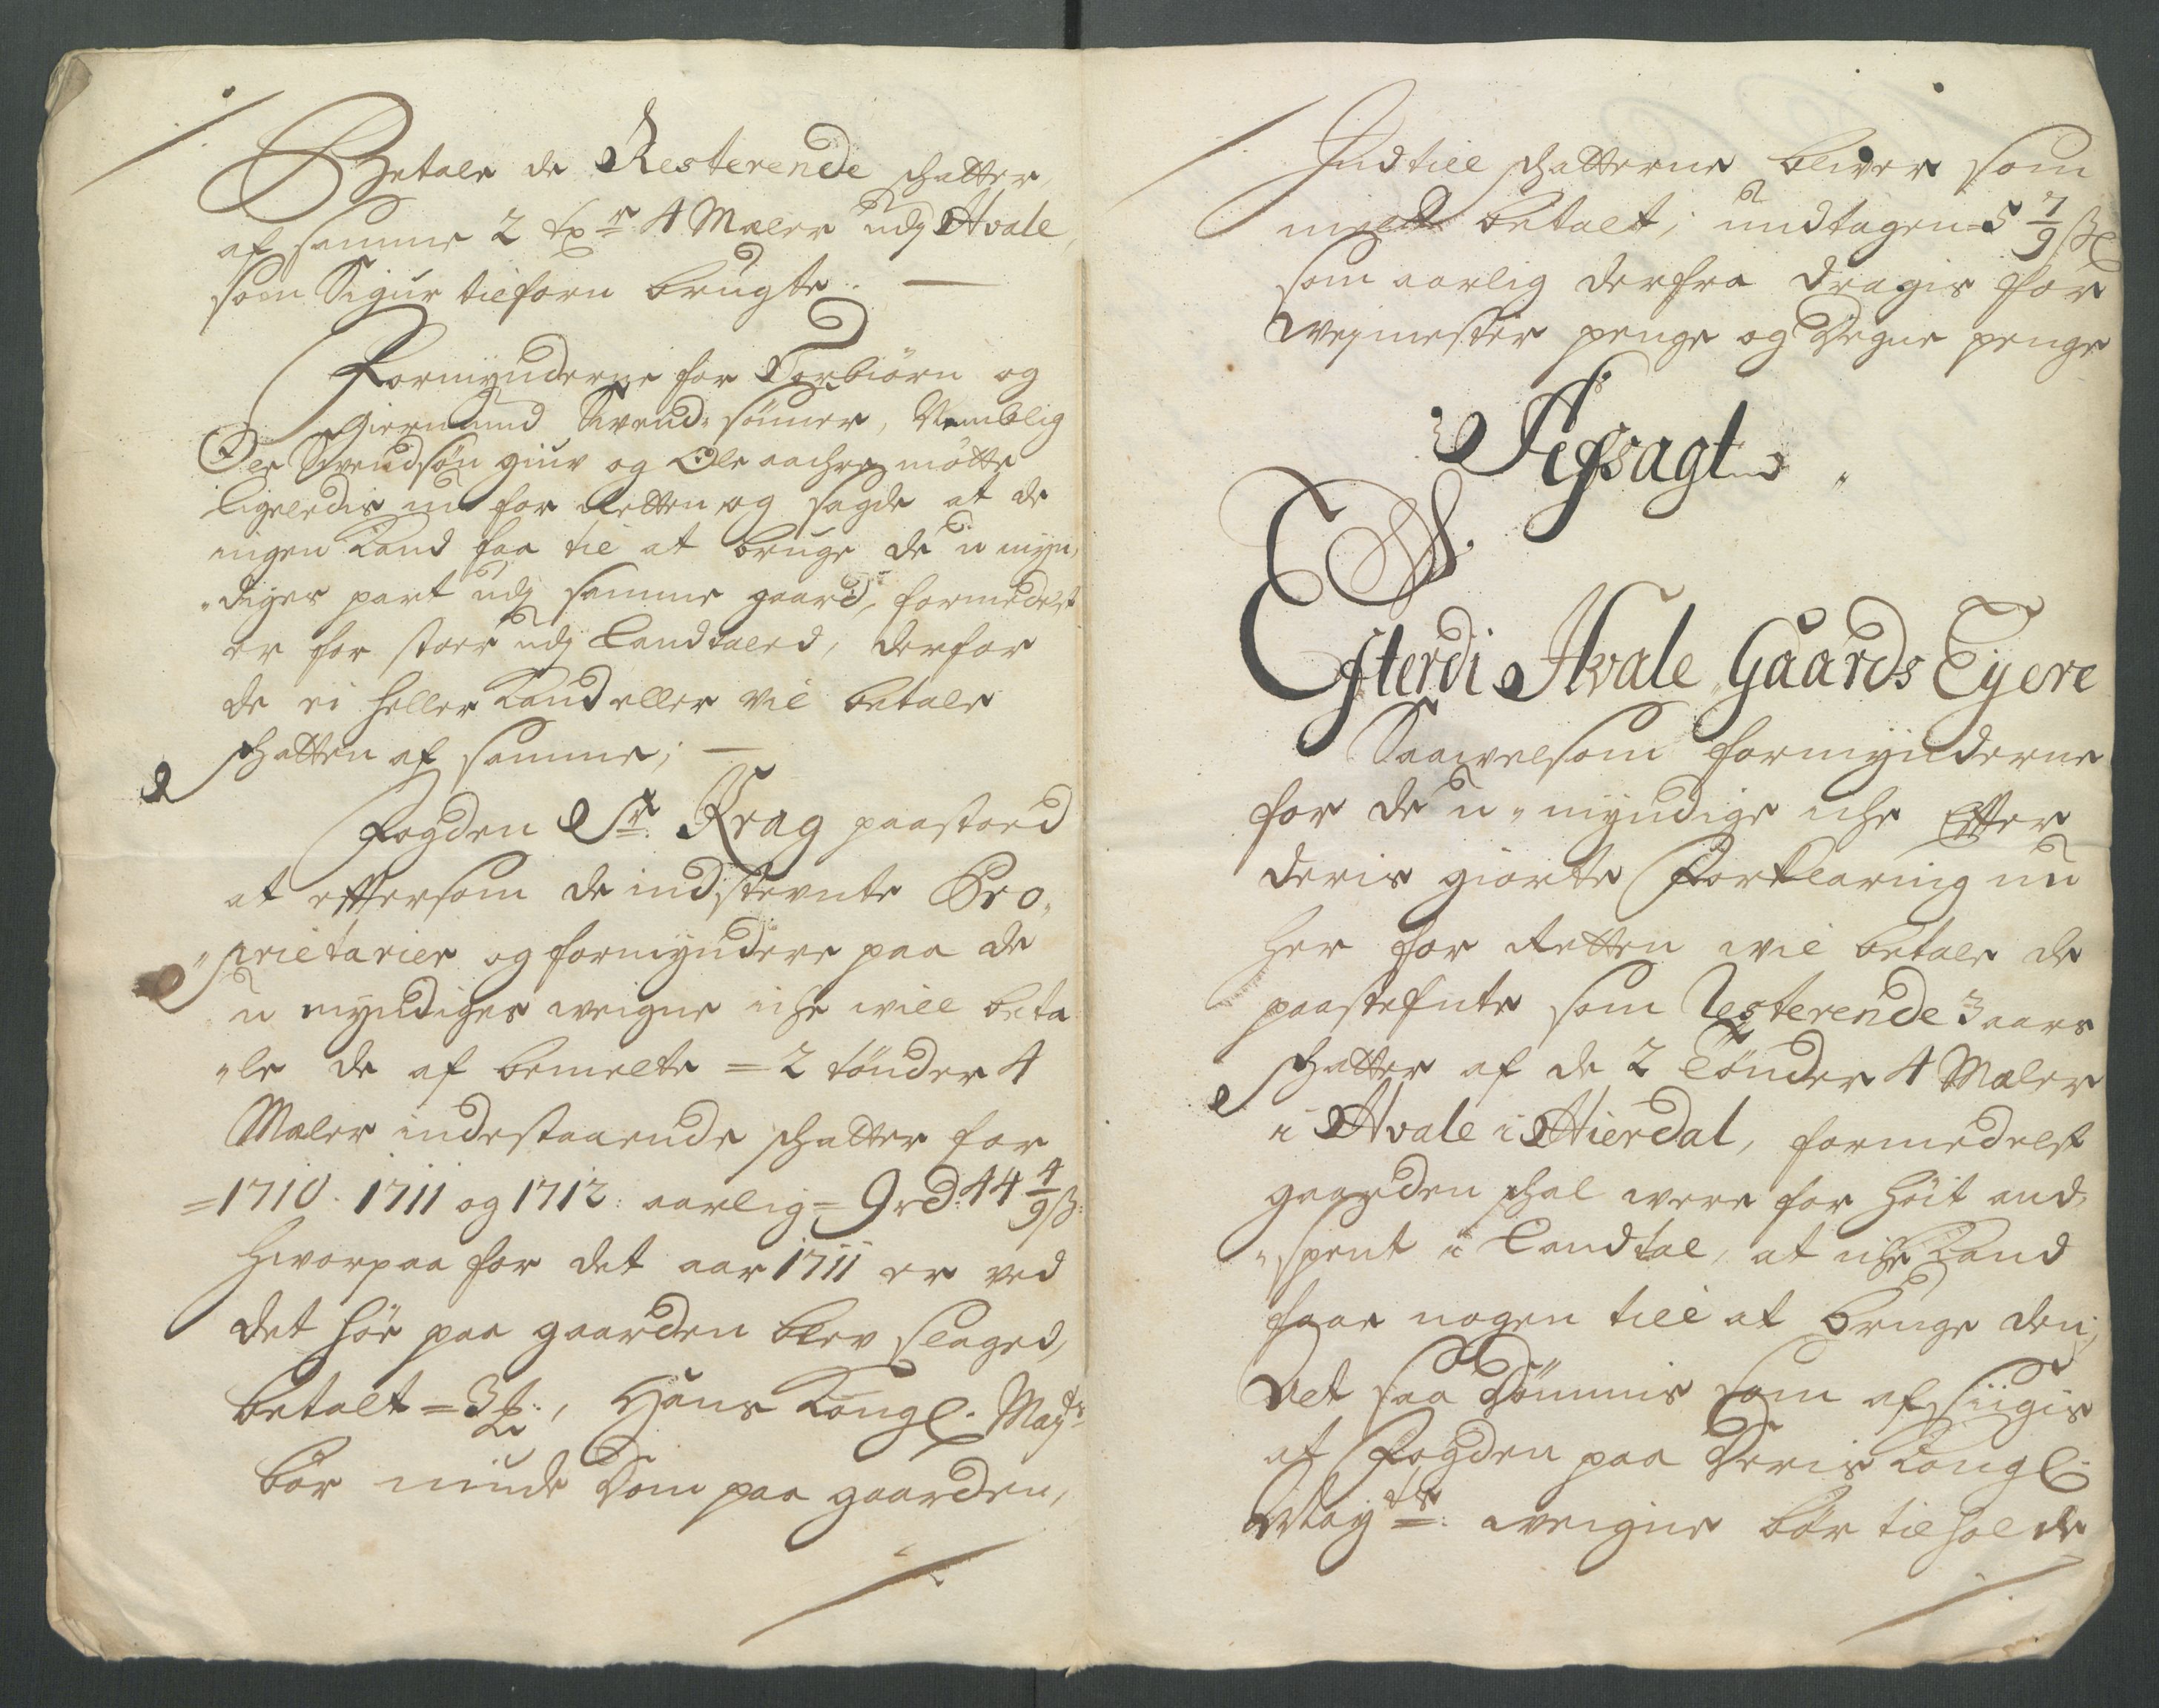 Betale de Resterende schatter
af samme 2 txr 4 Mæler udj Hvale
som Sigur tilforn brugte. —
Formynderne for Torbiørn og
Giermund Svend-sønner, Nemblig
Ole Svendsøn giuv og Ole aachre møtte
ligeledis nu for Retten og sagde at de
ingen Kand faa til at bruge de u-myn,
„diges part udj samme gaard, formedelst
er for stoer udj Landtaled, derfor
de ei heller Kand eller vil betale
schatten af samme; —
Fogden Sr. Krag paastoed
at effersom de indstevnte Pro„
„prietarier og formyndere paa de
u-myndiges weigne iche will beta
„le de af bemelte = 2 tönder 4
Mæler indestaaende schatter for
=1710. 1711 og 1712: aarlig = 9 rd: 44 4/9 ß:
hworpaa for det aar 1711 er ved
det höe paa gaarden blev slaged,
betalt = 3 , Hans Kongl. Mayts
bør niude Dom paa gaarden,
Indtill schatterne bliver som
melt betalt, undtagen = 5 7/9 ß
som aarlig derfra dragis for
weymester penge og Degne penge
Afsagt
Efterdi Hvale Gaards Ejere
Saawelsom formynderne
for de u-myndige iche Efter
deris giorte Forklaring nu
her for Retten wil betale de
paastefnte som Resterende 3 aars
schatter af de 2 Tönder 4 Mæler
i Hvale i Hierdal, formedelst
gaarden schal were for höit and„
„spent i Landtal, at iche Kand
faae nogen till at bruge den;
Det saa Dømmis som afsiigis
at Fogden paa Deris Kongl.
Mayts: weigne bør tilholde